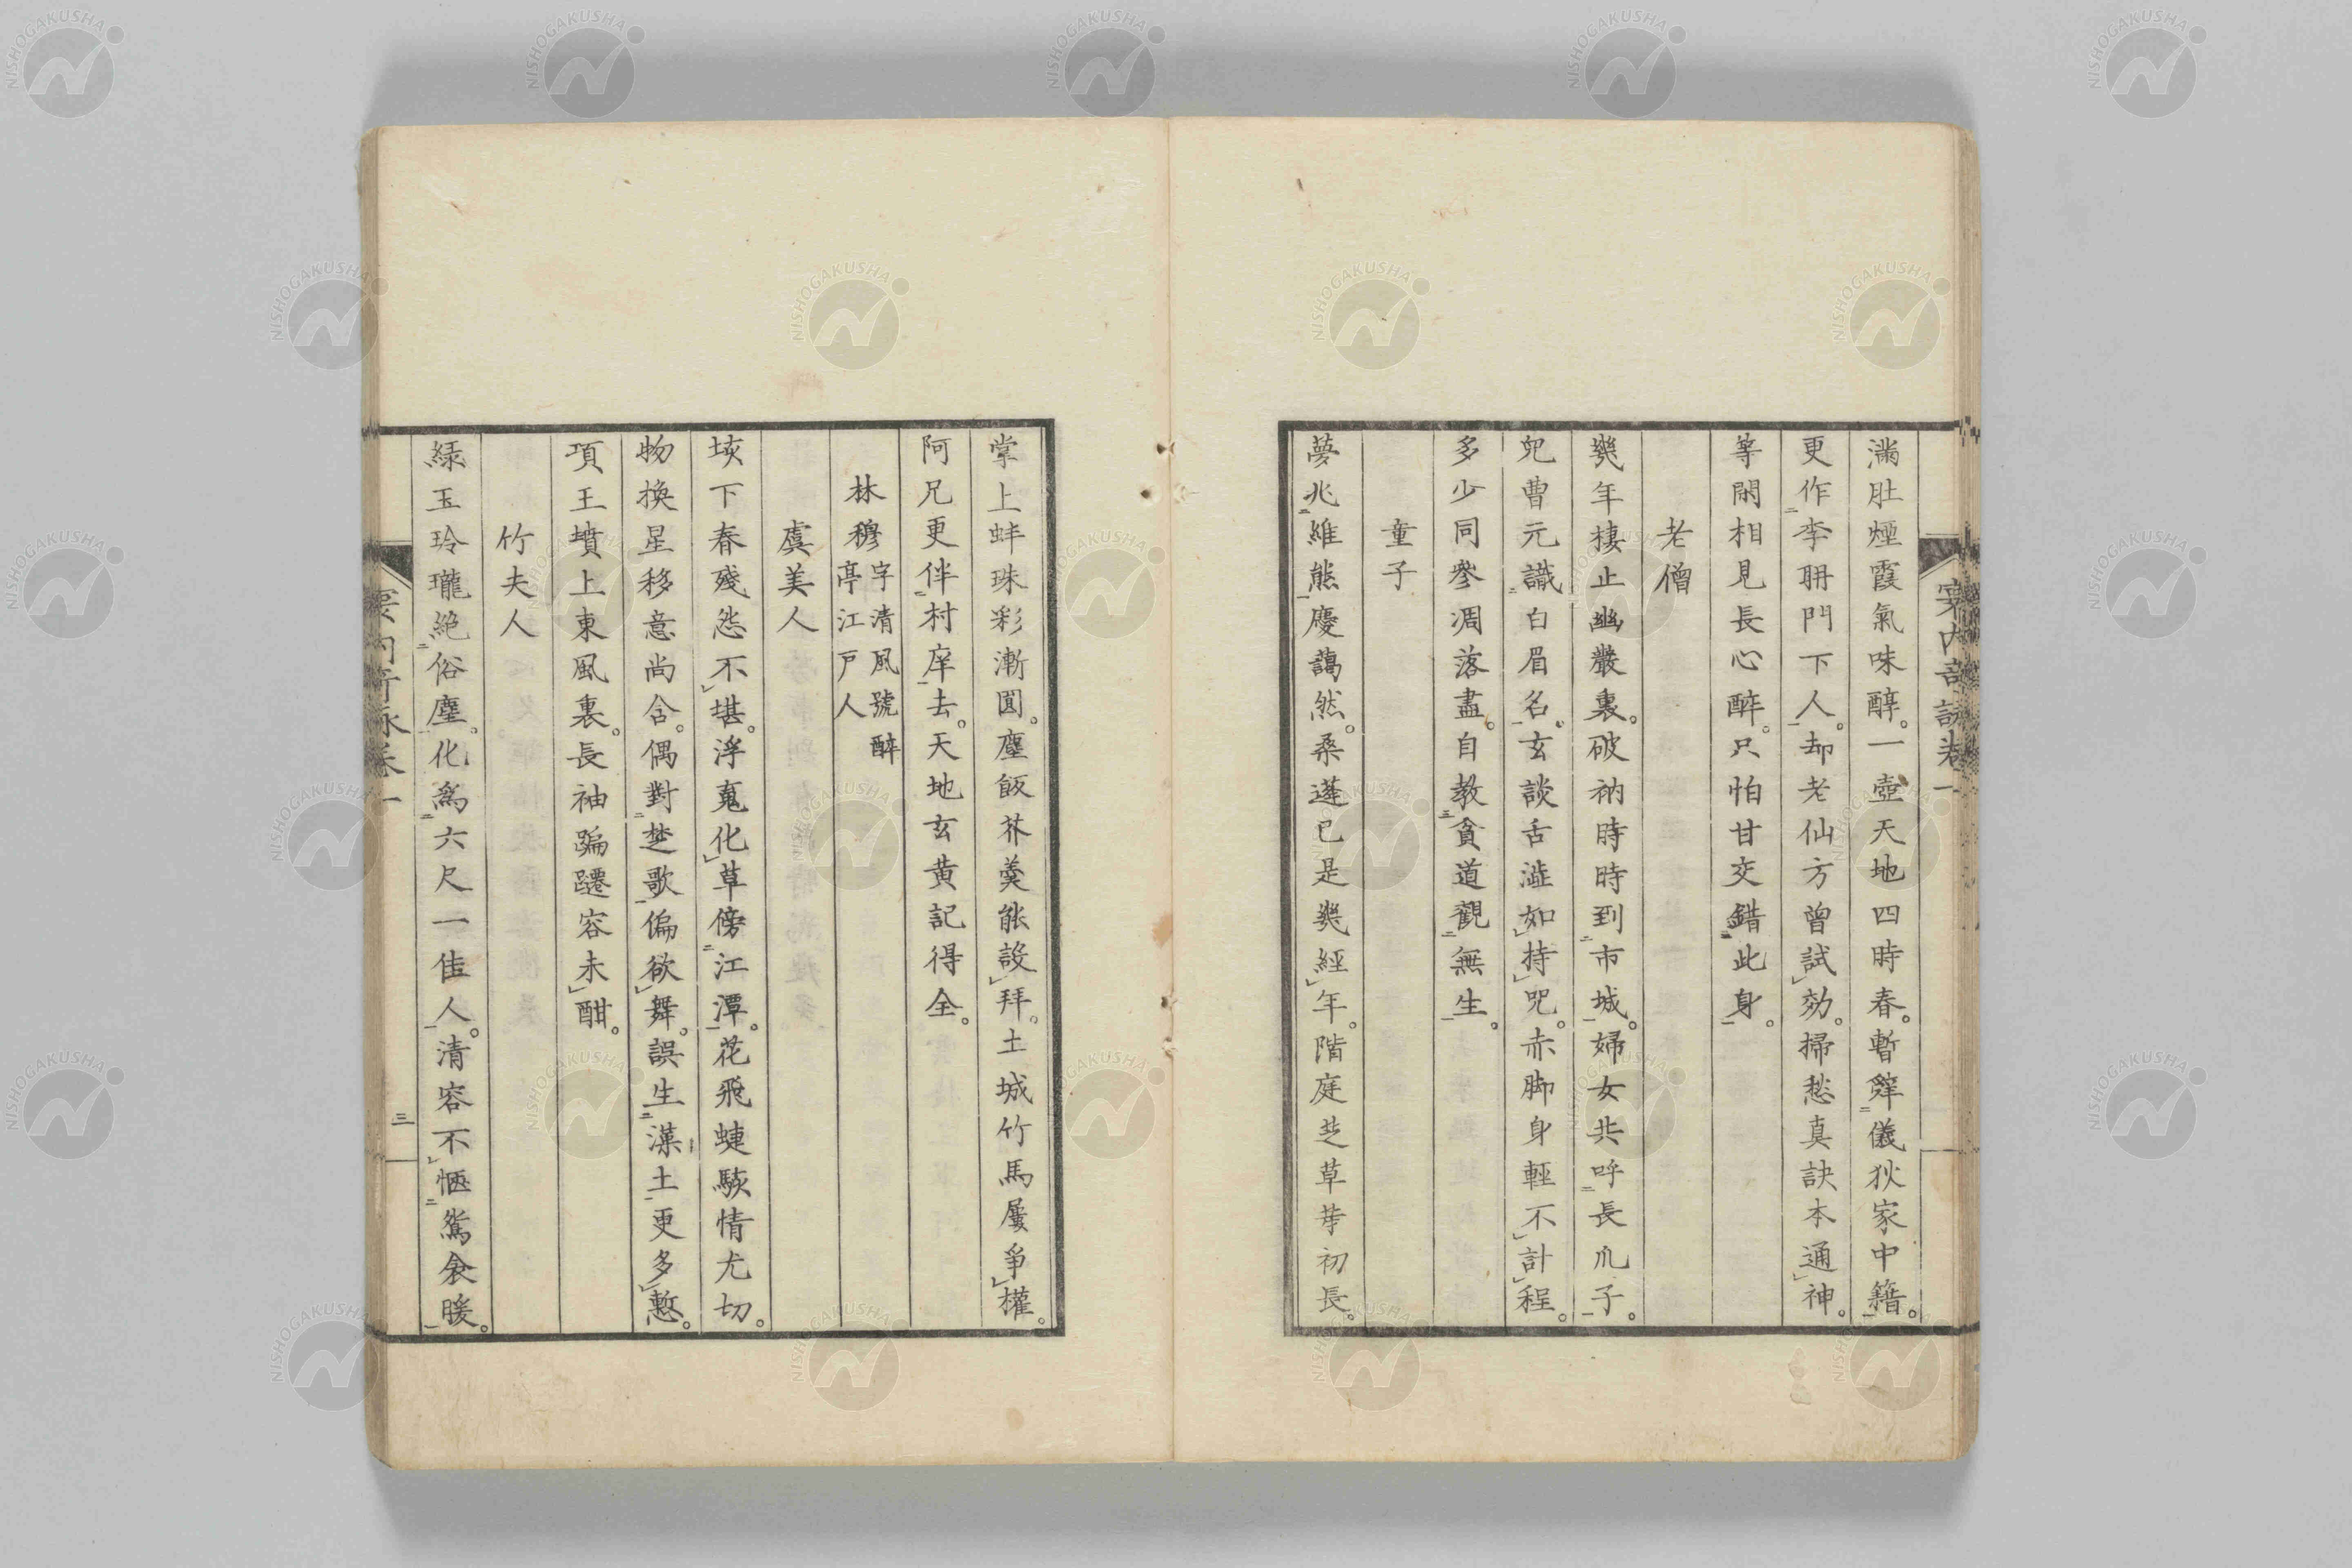 滿肚煙霞氣味醇。一壺天地四時春。暫辭儀狄家中籍。
更作李耼門下人。却老仙方曾試効。掃愁真訣本通神。
等閑相見長心醉。只怕甘交錯此身。
老僧
幾年棲止幽巖裏。破衲時時到市城。婦女共呼長爪子。
兒曹元識白眉名。玄談舌澁如持咒。赤脚身輕不計程。
多少同參凋落盡。自教貧道觀無生。
童子
夢兆維熊慶藹然。桑蓬已是幾經年。階庭芝草芽初長。
掌上蚌珠彩漸圓。塵飯芥羹能設拜。土城竹馬屢爭權。
阿兄更伴村庠去。天地玄黃記得全。
林穆 字清風號醉
亭江戸人
虞美人
垓下春殘怨不堪。浮寃化草傍江潭。花飛蜨駭情尤切。
物換星移意尚含。偶對楚歌偏欲舞。誤生漢土更多慙。
項王墳上東風裏。長袖蹁躚容未酣。
竹夫人
綠玉玲瓏絶俗塵。化爲六尺一佳人。清容不愜鴛衾暖。
三